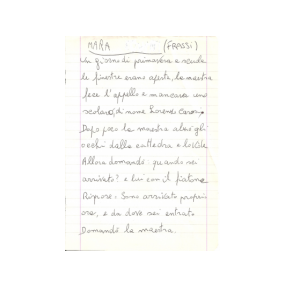 MARA (FRASSI)
Un giorno di primavera a scuola
le finestre erano aperte, la maestra
fece l'appello e mancava uno
scolaro, di nome Lorenzo
Dopo poco la maestra alzò gli
occhi dalla cattedra e lo vide
Allora domandò: quando sei
arrivato? e lui con il fiatone
Rispose: Sono arrivato proprio
ora, e da dove sei entrato
Domandò la maestra.